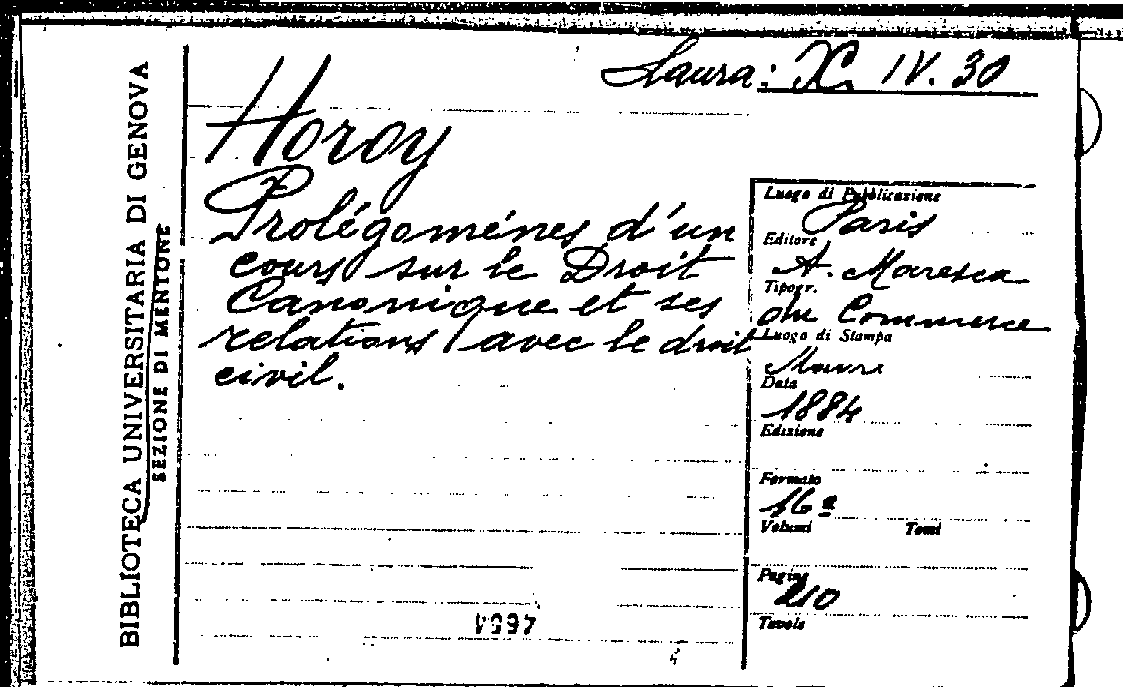 Laura: X. IV. 30
BIBLIOTECA UNIVERSITARIA DI GENOVA
SEZIONE DI MENTONE
Horoy
Prolégomènes d'un
cours sur le Droit
Canonique et ses
relations avec le droit
civil.
Luogo di Pubblicazione
Paris
Editore
A. Maresca
Tipogr.
du Commerce
Luogo di Stampa
Data
1884
Edizione
Formato
16º
Volumi Tomi
Pagine
210
Tavole